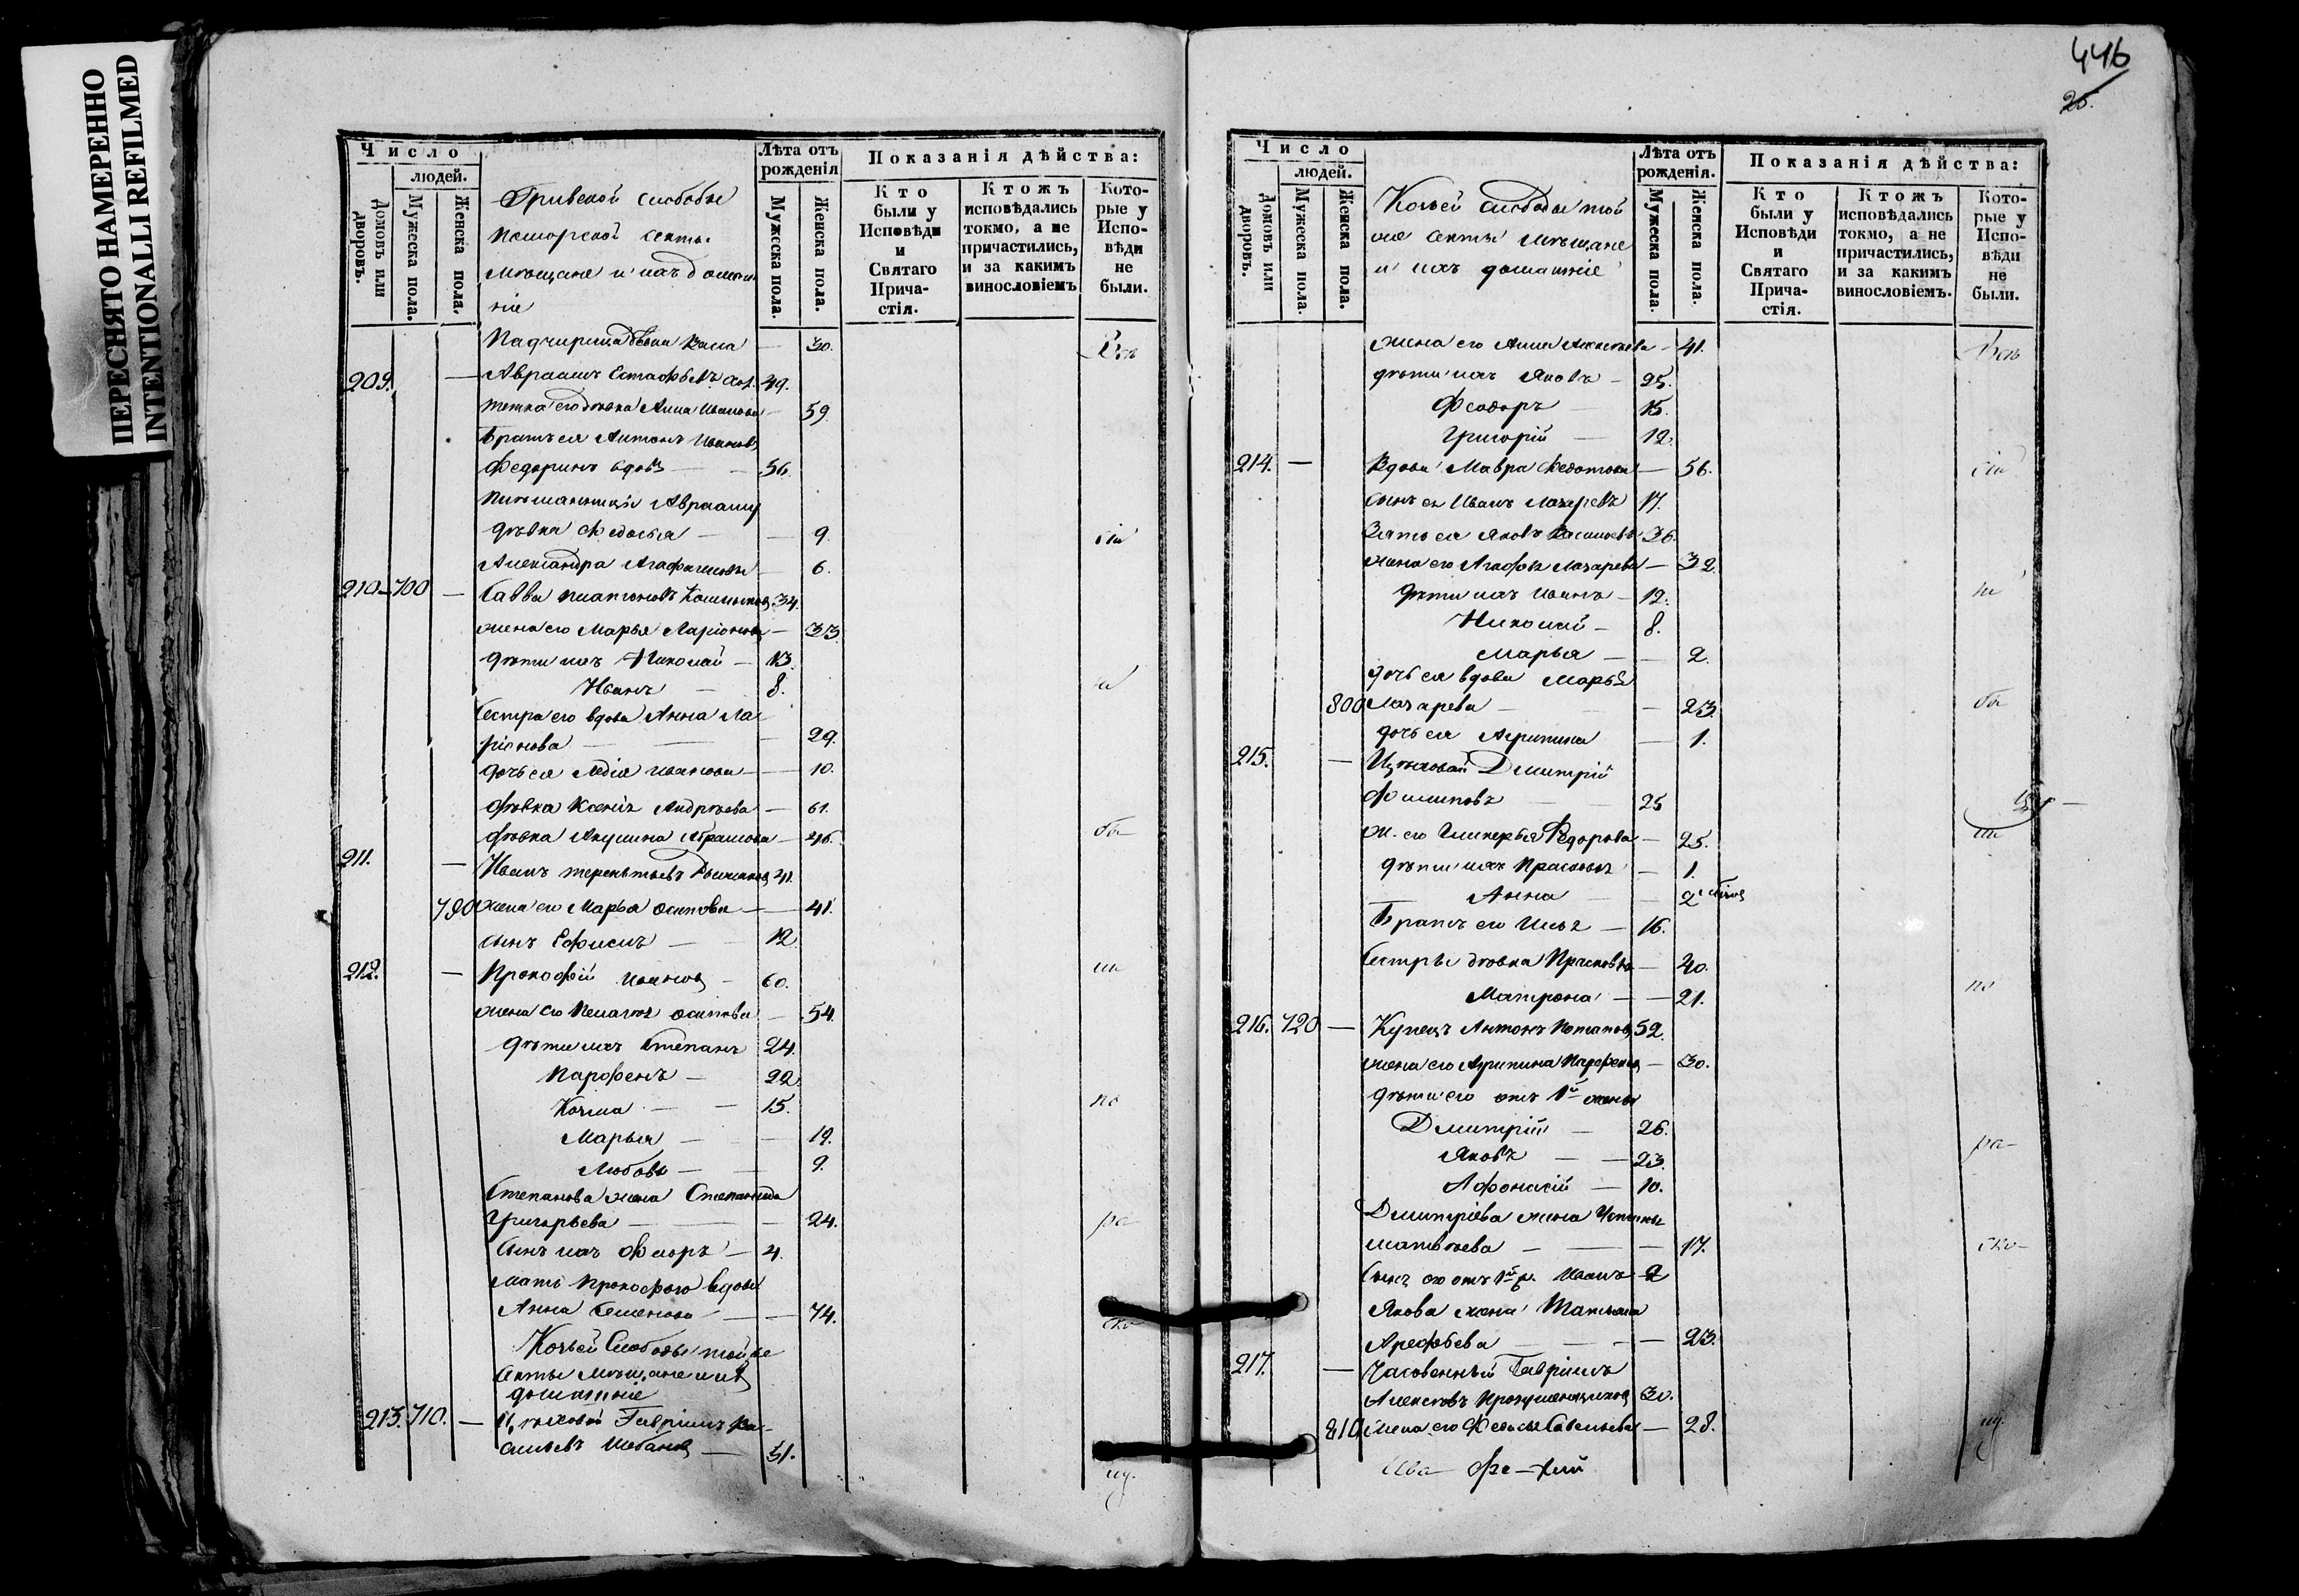 ПЕРЕСНЯТО НАМЕРЕННО
INTENTIONALLI REFILMED
Число
людей.
Домовъ или дворовъ.
Мужеска пола.
Женска пола.
Гривской слободы
поморской секты
мѣщане и ихъ домаш
ніе
Лѣта отъ рожденія
Мужеска пола.
Женска пола.
Показанія дѣйства:
Кто были у Исповѣди и Святаго Причастія.
Ктожъ исповѣдались токмо, а не причастились, и за какимъ винословіемъ
Которые у Исповѣди не были.
Падчерица 30.
209. — Авраамъ Естафьевъ 49.
тетка его дѣвка Анна Иванова — 59.
Братъ ея Антонъ Ивановъ
Федоринъ вдовъ — 56.
Авраама
дѣвка Федосья — 9. сіи
Александра Агафонова — 6.
210 — 700 — Савва Платоновъ 34.
жена его Марья Ларіонова — 33.
дѣти ихъ Николай — 13.
Иванъ — 8.
Сестра его вдова Анна Ла
ріонова — 29.
дочь ея Лидія Иванова — 10.
дѣвка Ксенія Андреева — 61.
дѣвка Акулина Абрамова — 46. бы
211. — Иванъ Терентьевъ 41.
790 жена его Марья Осипова — 41.
сынъ Ефимъ — 12.
212. — Прокофій Ивановъ — 60. ли
жена его Пелагея Осипова — 54.
дѣти ихъ Степанъ 24.
Парфенъ — 22.
Козма — 15. по
Марья — 19.
Любовь — 9.
Степанова жена Степанида
Григорьева — 24. ра
Сынъ ихъ Флоръ — 4.
Мать Прокофью вдова
Анна Семенова — 74. ско
Козьей Слободы той же
Секты Мѣщане и ихъ
домашніе
213. 710. — Цѣховой Гавріилъ Ва-
сильевъ Шебановъ — 51.
щу.
446
25.
Число
людей.
Домовъ или дворовъ.
Мужеска пола.
Женска пола.
Козьей слободы той
же секты мѣщане
и ихъ домашніе
Лѣта отъ рожденія.
Мужеска пола.
Женска пола.
Показанія дѣйства:
Кто были у Исповѣди и Святаго Причастія.
Ктожъ исповѣдались токмо, а не причастились, и за какимъ винословіемъ.
Которые у Исповѣди не были.
жена его Анна — 41. Всѣ
дѣти ихъ Яковъ — 25.
Феодоръ — 15.
Григорій — 12.
214. — Вдова Мавра Федотова — 56. сіи
сынъ ея Иванъ Лазаревъ 17.
Зять ея Яковъ Васильевъ 36.
жена его Агафья Лазарева — 32.
дѣти ихъ Иванъ — 12. не
Николай — 8.
Марья — 2.
дочь ея вдова Марья
800 Лазарева — 23. бы
дочь ея Агрипина — 1.
215. — Цѣховой Дмитрій
Филиповъ — 25
ж. его Гликерья Федорова — 25. ли
дѣти ихъ Прасковья — 1.
Анна — 2
Братъ его Илья — 16.
Сестры дѣвка Прасковья — 20.
Матрона — 21. по
216. 720 — Купецъ Антонъ Потаповъ 52.
жена его Агрипина — 30.
дѣти его отъ 1й жены
Дмитрій — 26. ра-
Яковъ — 23.
Афонасій — 10.
Дмитріева жена
Матвѣева — 17. ско-
Сынъ его отъ 1й ж. Иванъ 2
Якова жена Татьяна
Арефьева — 23.
217. — Часовенный Гавріилъ
Алексѣевъ 30.
810 жена его Федосья Савельева — 28. щу.